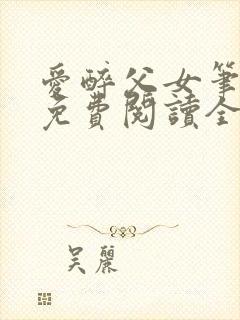 愛醉父女筆
免費閱讀全
吴麗